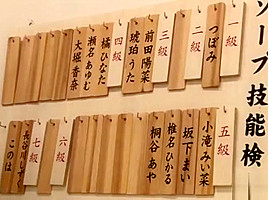 ソープ技能検
一級
つぼみ
二級
三級
前田陽菜
琥珀うた
四級
橘ひなた
瀬名あゆむ
大堀香奈
五級
小滝みい菜
坂下まい
椎名ひかる
桐谷あや
六級
七級
長谷川しずく
このは